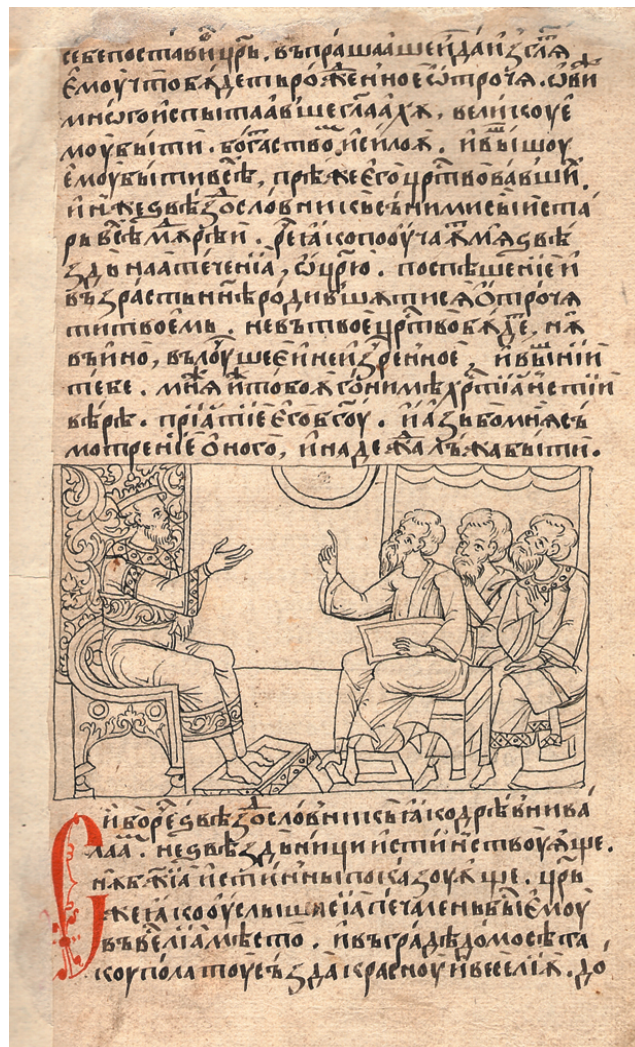 себепостави́ црь . въпрашаашейда́изгл҃я
є҆моу̀чтобѫдетьро́женноеѿтрочя . ѡ҆ви
мнѡгои҆спытаавшеглаахѫ , вели́коує҆
моубы́ти . бога́ство и҆си́лоѫ . и҆вы́шоу
є҆моубы́тивсѣ , прѣ́жеє҆гоцр҃твовавши .
и҆н̾жеѕвѣздосло́вникъсъни́мисы́ й҆ста
рѣ́ всѣ мѫ́дрѣи . рѐꙗ҆копооу҆ча́ мѧѕвѣ
здънаатече́нїа , ѽ цр҃ю . поспѣше́нїеи
въ́зрастьн҃нѣроди́вшѧтисѧѻ҆трочѧ
титвоемъ . невътвоецр҃твобѫде , нѫ
въи́но , въ́лоу́шееи҆неи҆зре́нное , и҆вы́шїи
тебе . мнѧ и҆тобоѫгони́мѣхр҃тїа́нстїи
вѣ́рѣ . прїа́тїеє҆гобг҃оу . и҆а҆зъбомнѧсъ
мотре́нїеѻ҆ного , и҆наде́жалъжабы́ти .
Си́ борѐѕвѣздосло́вникъꙗ҆кодрѣ́внива
лаа́ . неѕвѣздъни́циистинствоуѫще .
нѫбж҃їа и҆стинныпока́зоуѫще . цр҃ь
жеꙗ҆кооу҆слы́шясїапеча́ленъбы́ є҆моу
въвелїа мѣсто . и҆въгра́дѣдо́мосѣта
коупола́тоусъзда̀красноуи҆весе́лїѫ . до